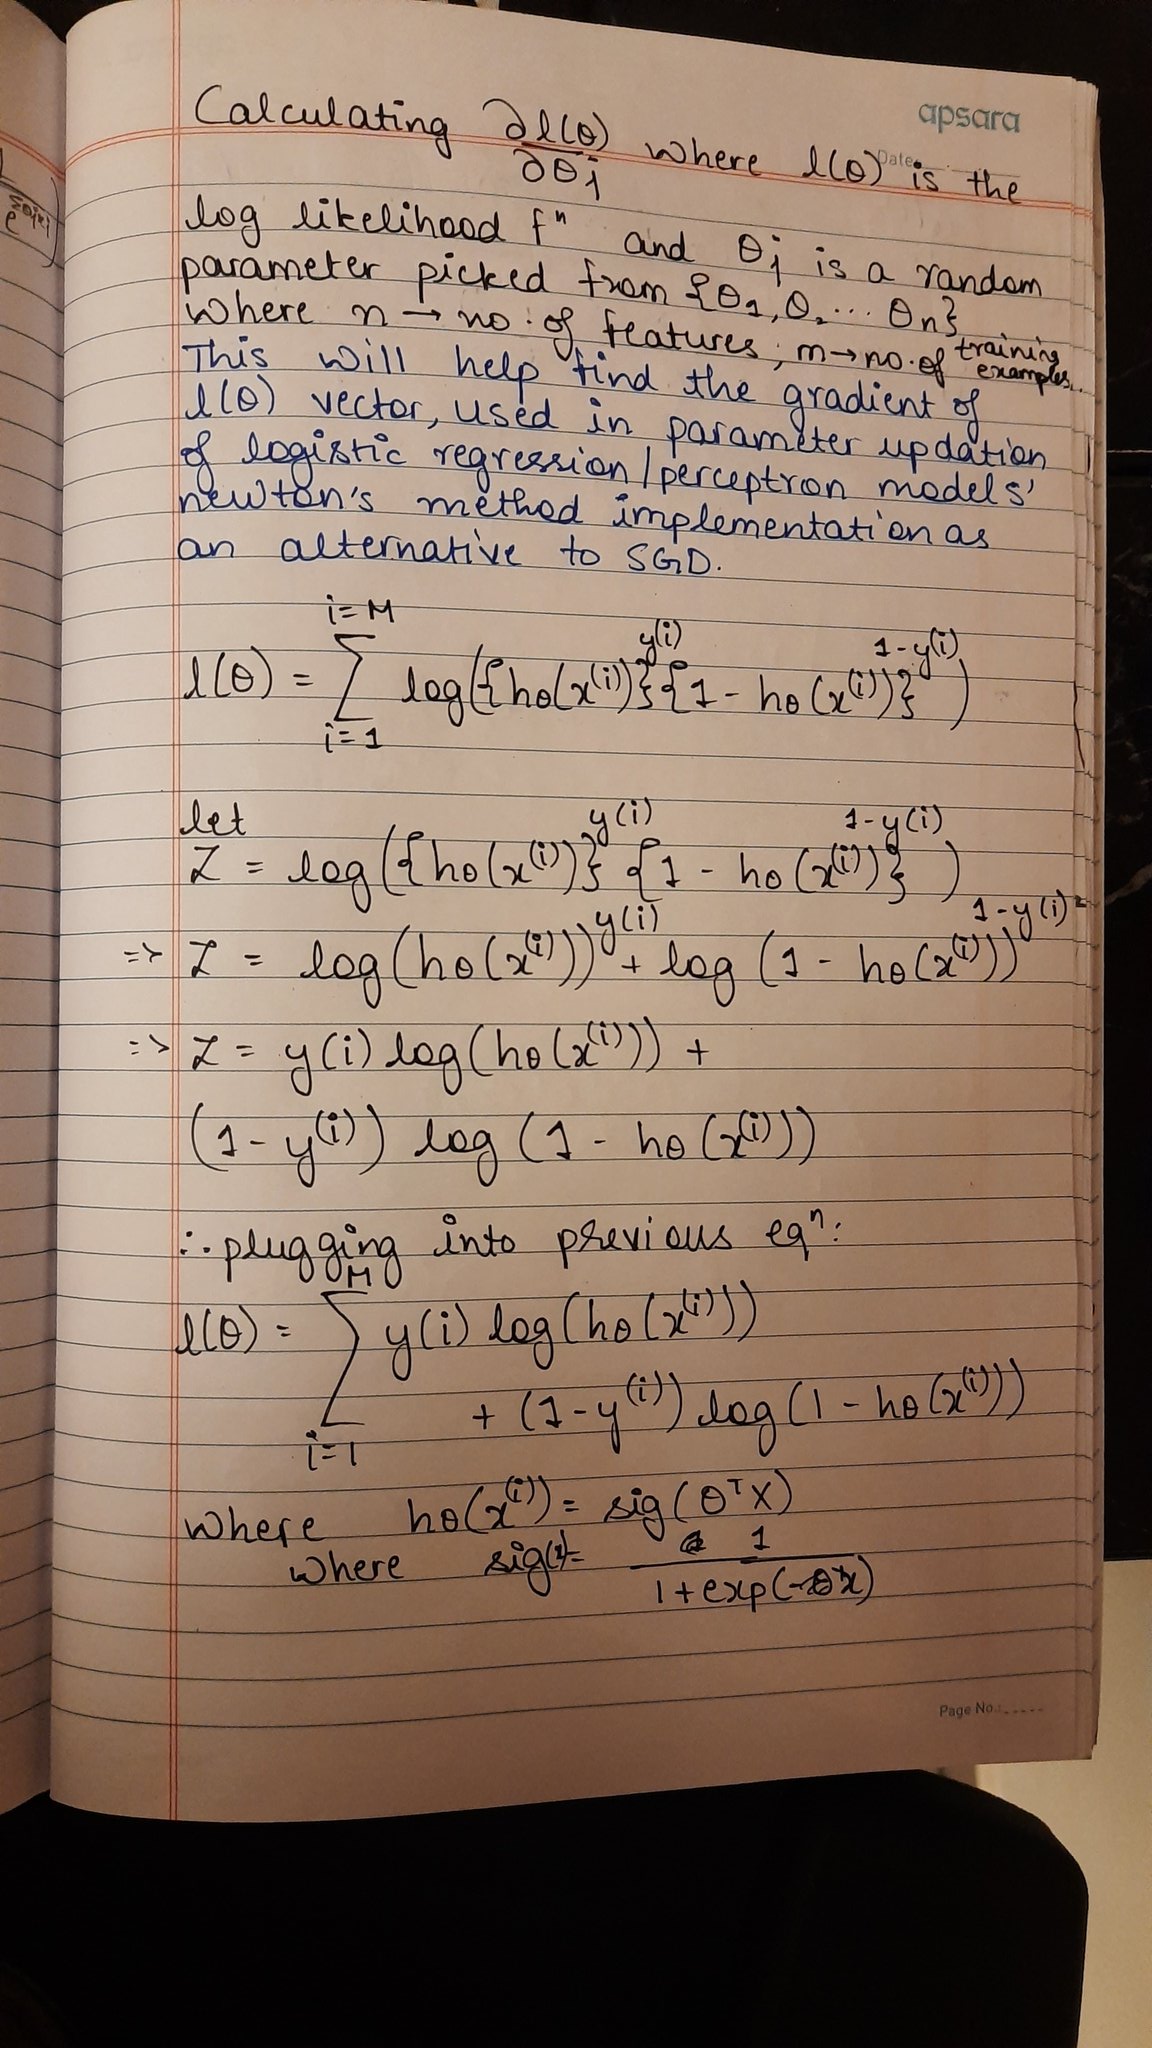 apsara
Date
Calculating ∂l(θ)/∂θj where l(θ) is the
log likelihood fⁿ and θj is a random
parameter picked from {θ1, θ2 ... θn}
where n → no. of features, m → no. of training examples..
This will help find the gradient of
l(θ) vector, used in parameter updation
of logistic regression/perceptron models'
newton's method implementation as
an alternative to SGD.
i=M
l(θ) = Σ log({hθ(x⁽ⁱ⁾)}^y(i) {1 - hθ(x⁽ⁱ⁾)}^1-y(i))
i=1
let
Z = log({hθ(x⁽ⁱ⁾)}^y(i) {1 - hθ(x⁽ⁱ⁾)}^1-y(i))
=> Z = log(hθ(x⁽ⁱ⁾))^y(i) + log(1 - hθ(x⁽ⁱ⁾))^1-y(i)
=> Z = y(i) log(hθ(x⁽ⁱ⁾)) +
(1 - y⁽ⁱ⁾) log(1 - hθ(x⁽ⁱ⁾))
∴ plugging into previous eqⁿ:
M
l(θ) = Σ y(i) log(hθ(x⁽ⁱ⁾))
+ (1 - y⁽ⁱ⁾) log(1 - hθ(x⁽ⁱ⁾))
i=1
where hθ(x⁽ⁱ⁾) = sig(θᵀX)
where sig(x) = 1/(1 + exp(-θᵀx))
Page No.: